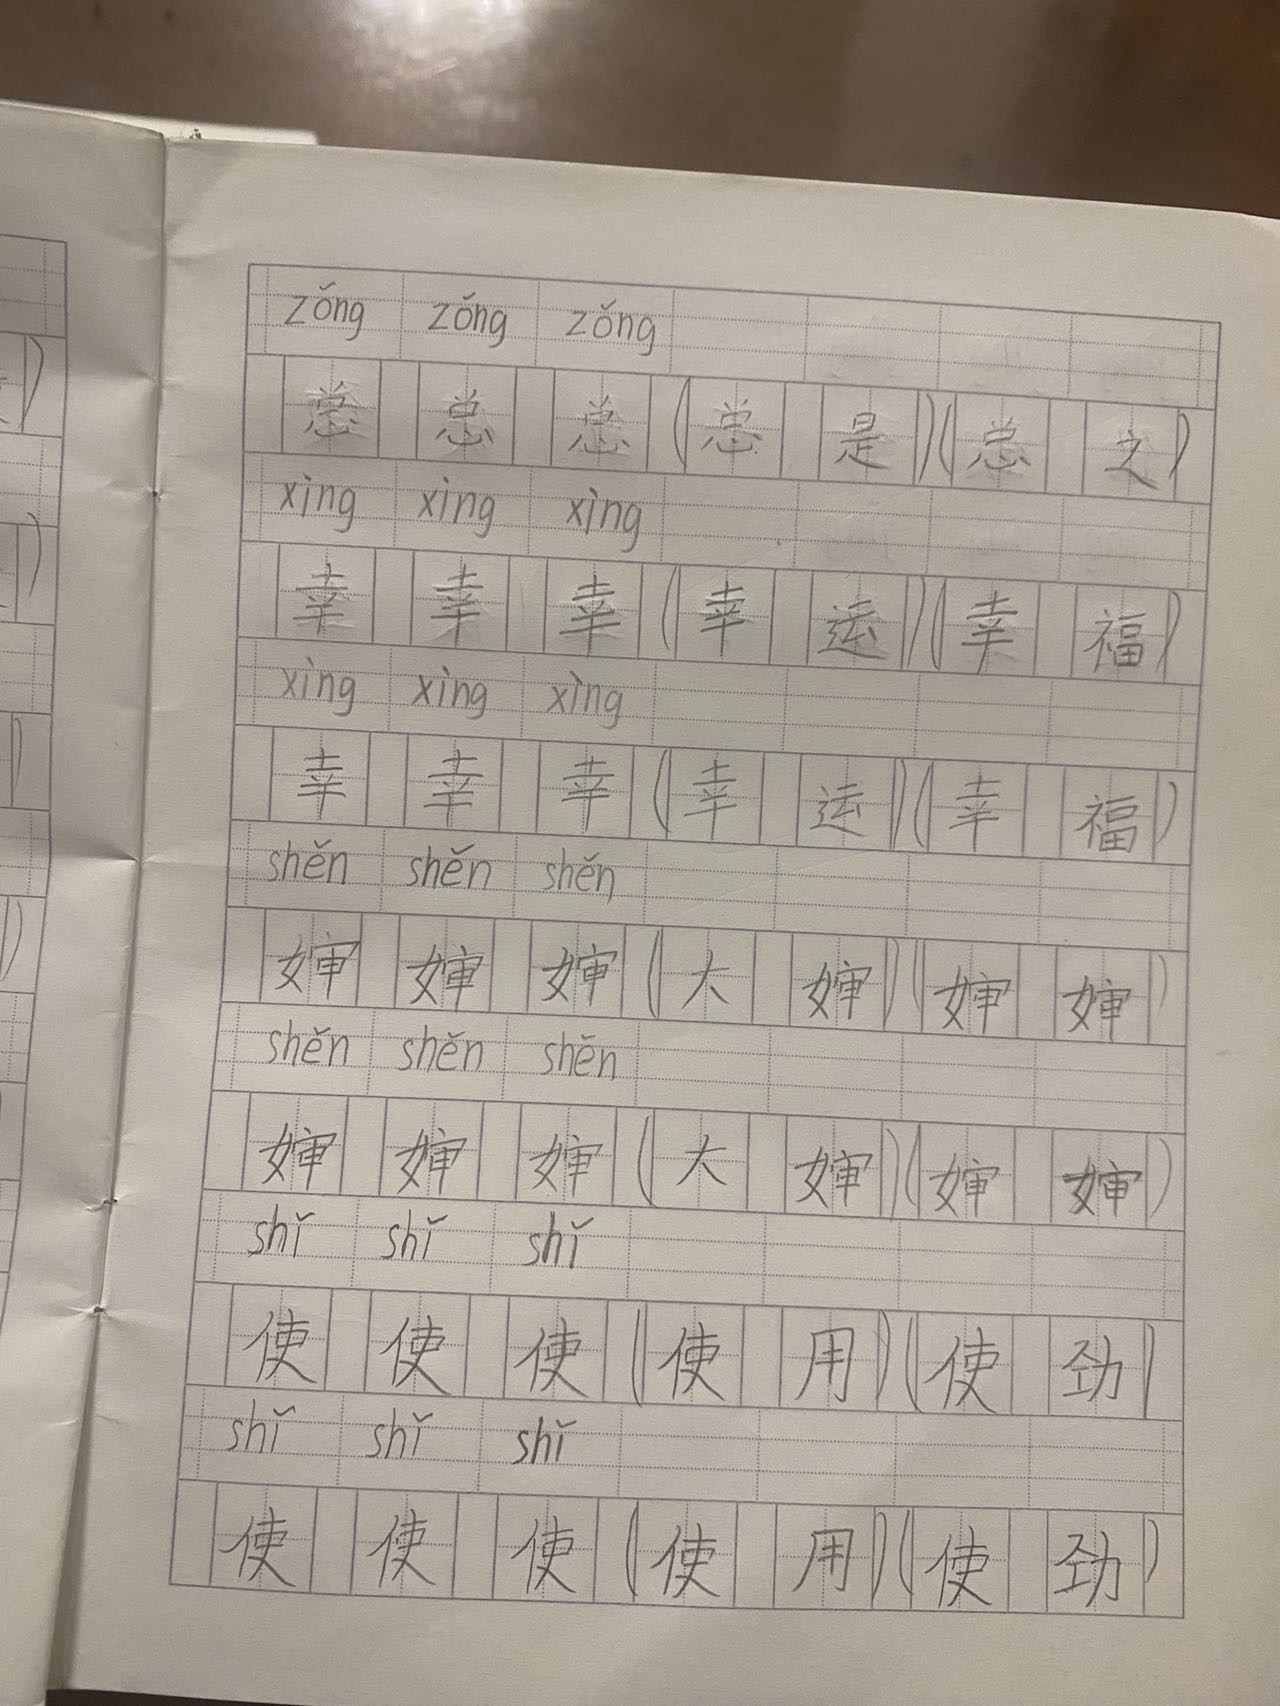 zǒng zǒng zǒng
总 总 总 (总 是)(总 之)
xìng xìng xìng
幸 幸 幸 (幸 运)(幸 福)
xìng xìng xìng
幸 幸 幸 (幸 运)(幸 福)
shěn shěn shěn
婶 婶 婶 (大 婶)(婶 婶)
shěn shěn shěn
婶 婶 婶 (大 婶)(婶 婶)
shǐ shǐ shǐ
使 使 使 (使 用)(使 劲)
shǐ shǐ shǐ
使 使 使 (使 用)(使 劲)